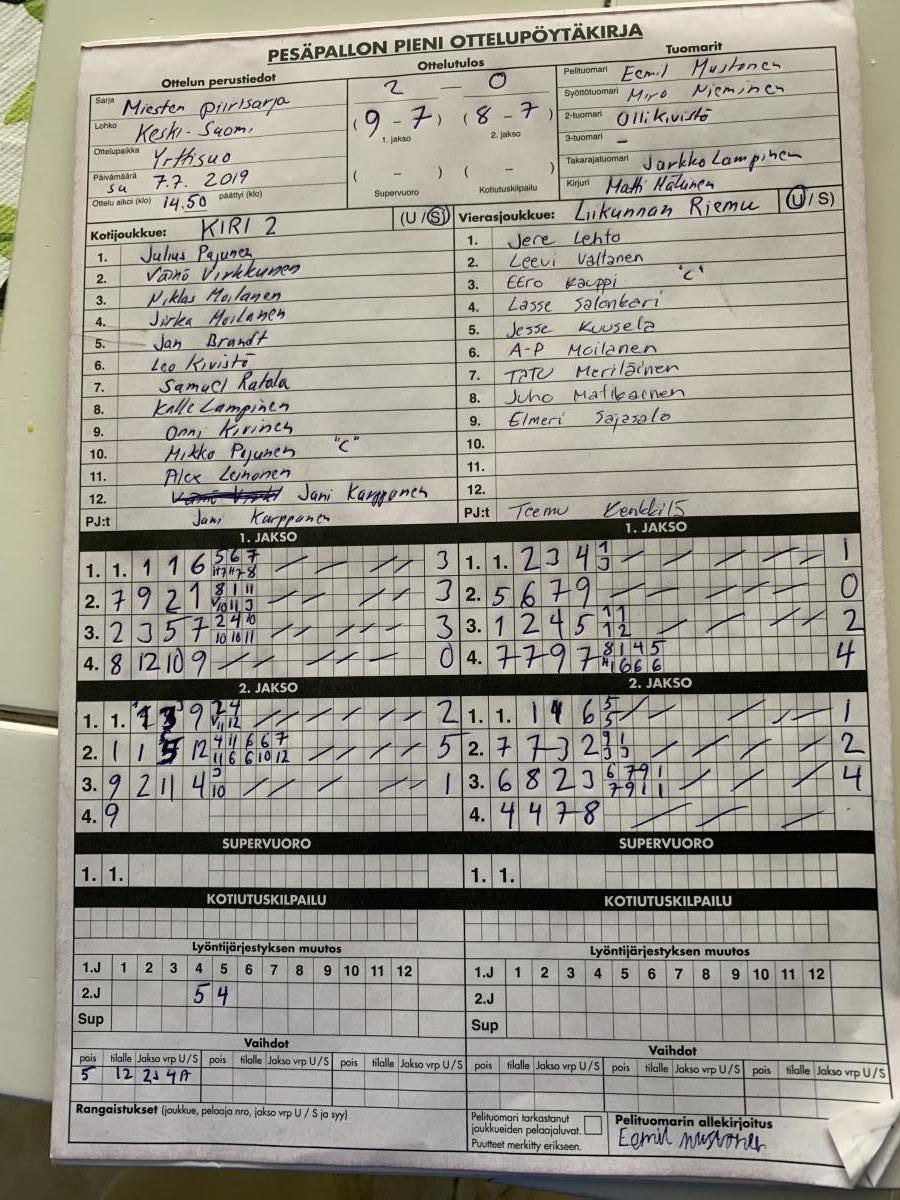 PESÄPALLON PIENI OTTELUPÖYTÄKIRJA
Ottelun perustiedot
Sarja Miesten piirisarja
Lohko Keski-Suomi
Ottelupaikka Yrttisuo
Päivämäärä su 7.7. 2019
Ottelu alkoi (klo) 14.50 päättyi (klo)
Ottelutulos
2 — 0
( 9 - 7 ) ( 8 - 7 )
1. jakso 2. jakso
( - ) ( - )
Supervuoro Kotiutuskilpailu
Tuomarit
Pelituomari Eemil Mustonen
Syöttötuomari Miro Nieminen
2-tuomari Olli Kivistö
3-tuomari –
Takarajatuomari Jarkko Lampinen
Kirjuri Matti Hätinen
Kotijoukkue: KIRI 2 (U / S)
1. Julius Pajunen
2. Väinö Virkkunen
3. Niklas Moilanen
4. Jirka Moilanen
5. Jan Brandt
6. Leo Kivistö
7. Samuel Ratala
8. Kalle Lampinen
9. Onni Kirinen
10. Mikko Pajunen "C"
11. Alex Leinonen
12. Jani Karppanen
PJ:t Jani Karppanen
Vierasjoukkue: Liikunnan Riemu (U / S)
1. Jere Lehto
2. Leevi Valtanen
3. Eero Kauppi "C"
4. Lasse Salonkari
5. Jesse Kuusela
6. A-P Moilanen
7. Tatu Meriläinen
8. Juho Matikainen
9. Elmeri Sajasalo
10.
11.
12.
PJ:t Teemu Kenkkilä
1. JAKSO
1. 1. 1 1 6 5 6 7 3
2. 7 9 2 1 8 1 11 3
3. 2 3 5 7 2 4 10 3
10 10 11
4. 8 12 10 9 0
1. JAKSO
1. 1. 2 3 4 1 1
3
2. 5 6 7 9 0
3. 1 2 4 5 1 1 2
1 2
4. 7 7 9 7 8 1 4 5 4
6 6 6
2. JAKSO
1. 1. 9 2 4 2
11 12
2. 1 1 5 12 4 11 6 6 7 5
11 6 6 10 12
3. 9 2 11 4 3 1
10
4. 9
2. JAKSO
1. 1. 1 4 6 5 1
5
2. 7 7 3 2 9 3 2
3 3
3. 6 8 2 3 6 7 9 1 4
7 9 1 1
4. 4 4 7 8
SUPERVUORO
1. 1.
SUPERVUORO
1. 1.
KOTIUTUSKILPAILU
KOTIUTUSKILPAILU
Lyöntijärjestyksen muutos
1.J 1 2 3 4 5 6 7 8 9 10 11 12
2.J 5 4
Sup
Lyöntijärjestyksen muutos
1.J 1 2 3 4 5 6 7 8 9 10 11 12
2.J
Sup
Vaihdot
pois tilalle Jakso vrp U/S pois tilalle Jakso vrp U/S pois tilalle Jakso vrp U/S
5 12 2J 4A
Vaihdot
pois tilalle Jakso vrp U/S pois tilalle Jakso vrp U/S pois tilalle Jakso vrp U/S
Rangaistukset (joukkue, pelaaja nro, jakso vrp U / S ja syy)
Pelituomari tarkastanut
joukkueiden pelaajaluvat.
Puutteet merkitty erikseen.
Pelituomarin allekirjoitus
Eemil Mustonen